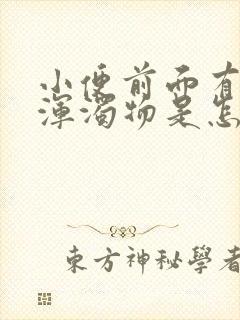 小便前面有
渾濁物是怎
東方神秘學者